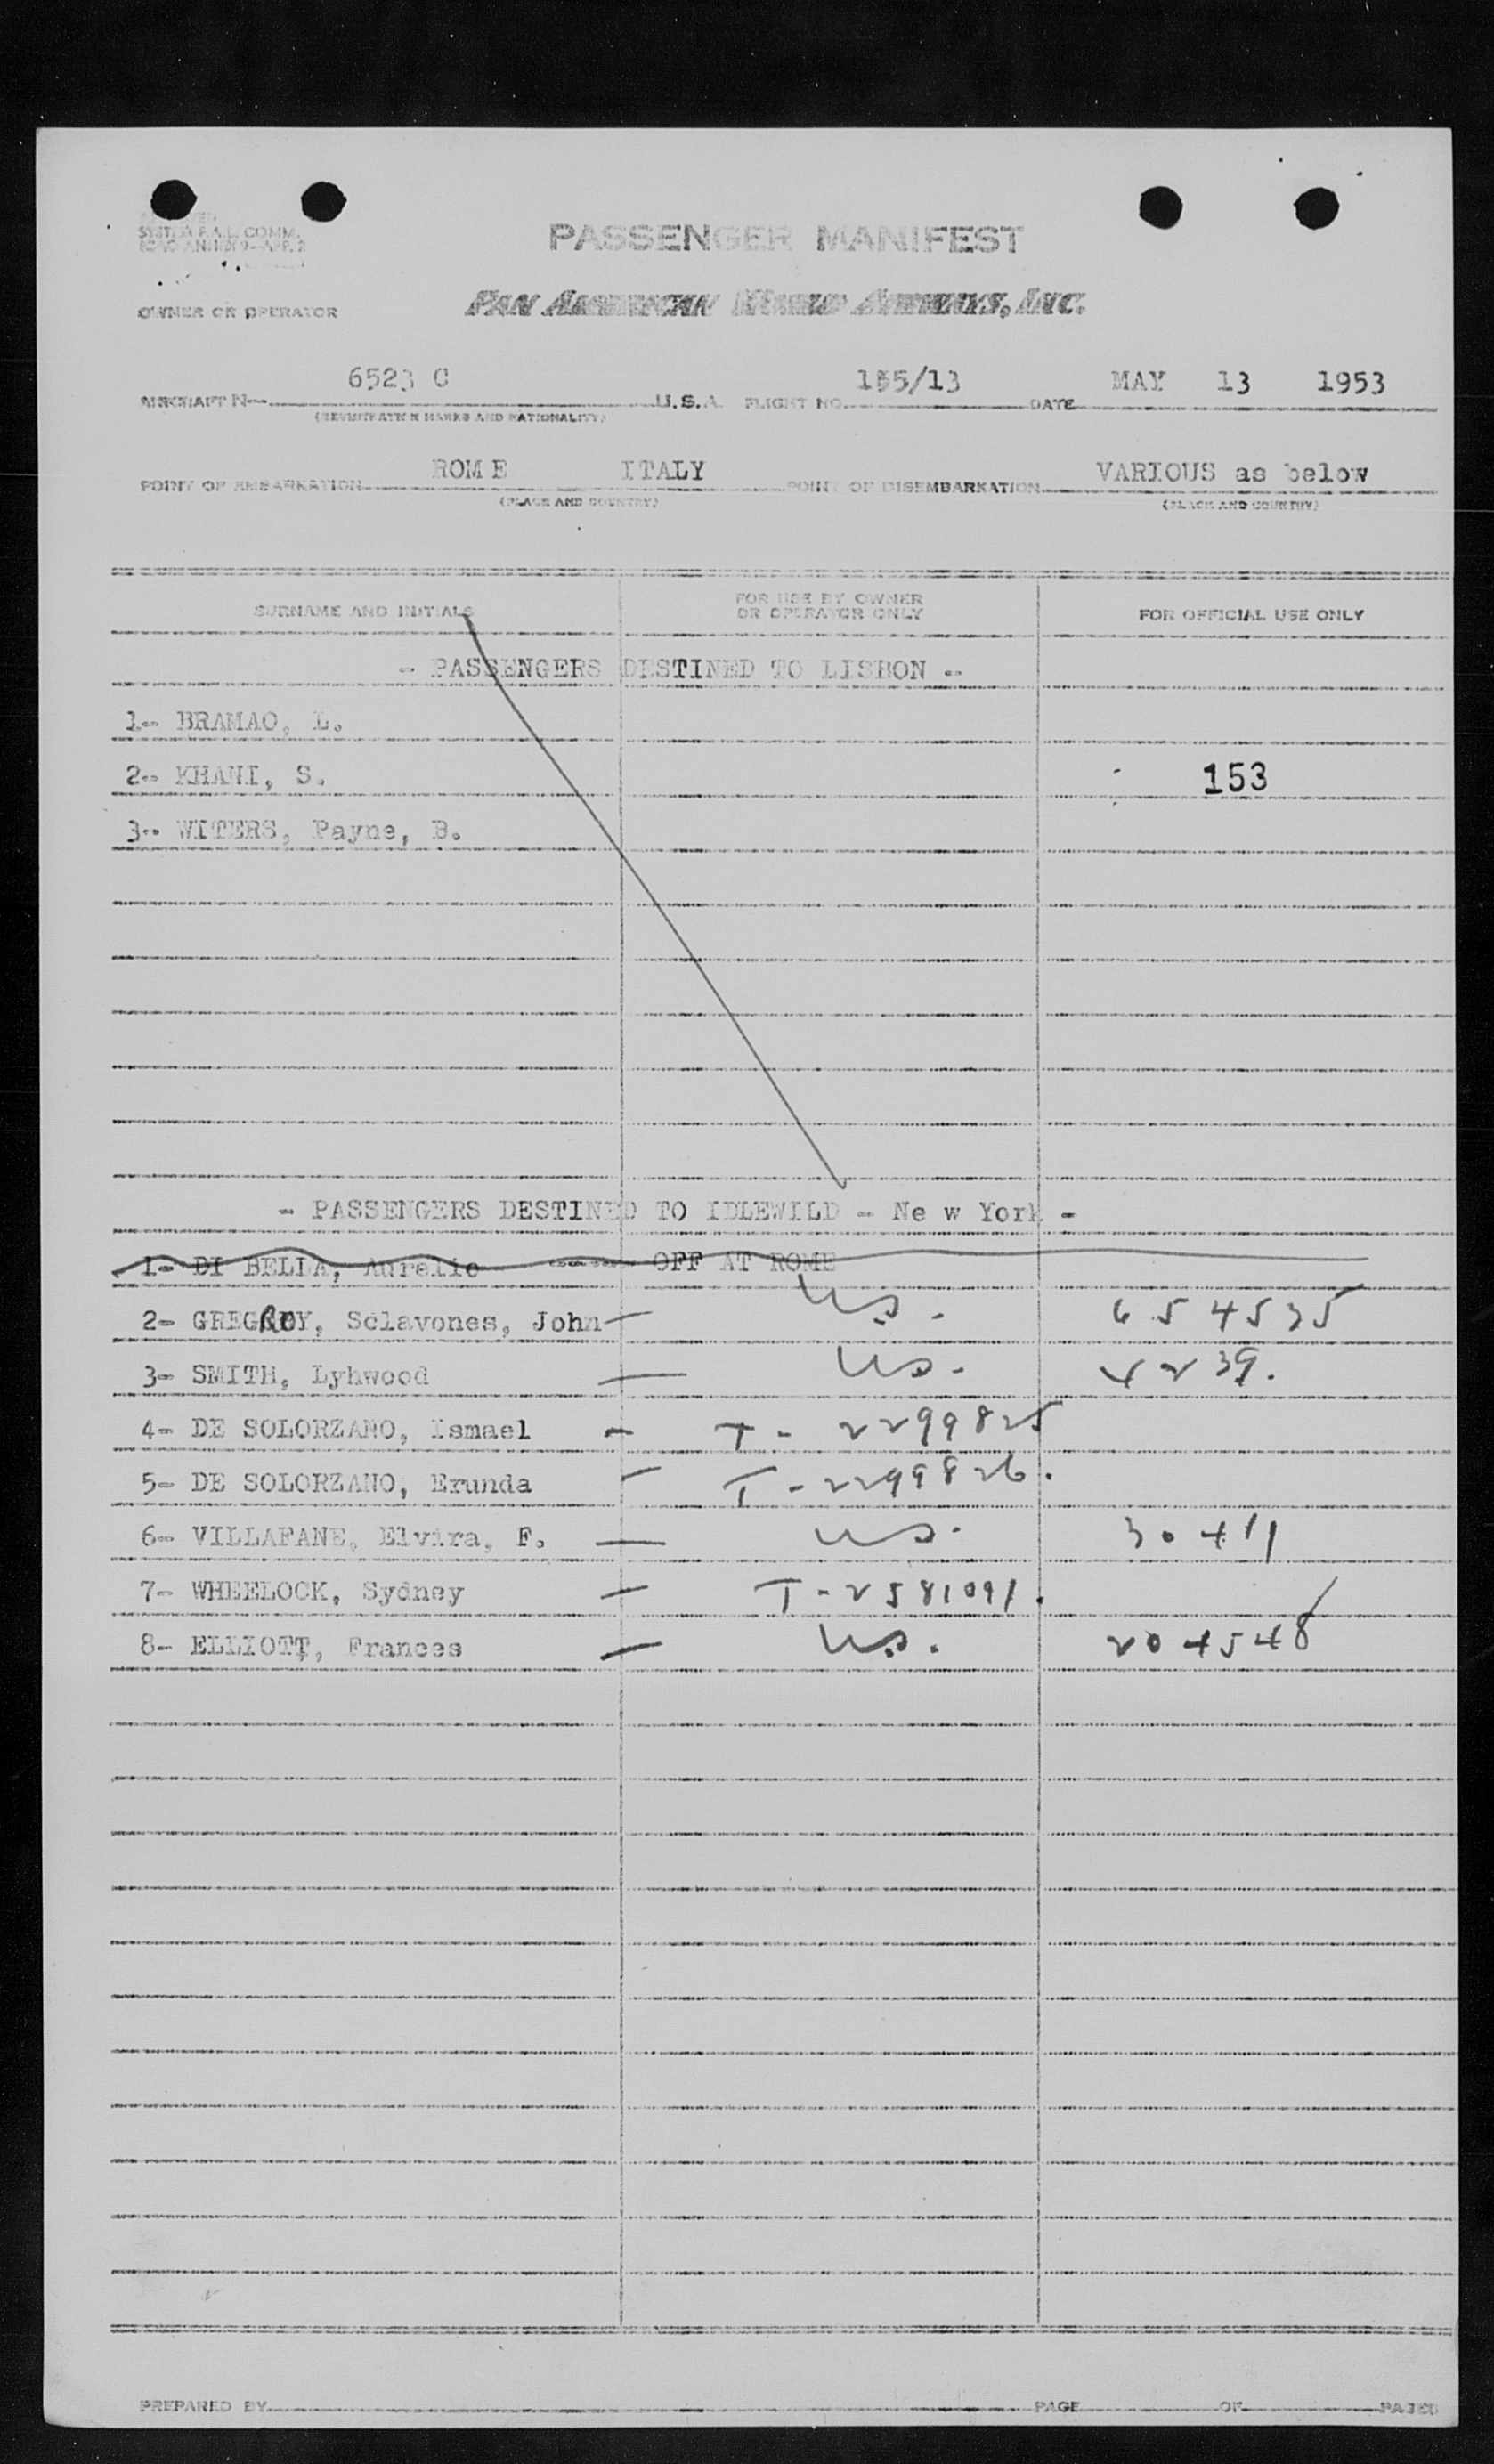 SYSTEM F.A.L. COMM.
PASSENGER MANIFEST
OWNER OR OPERATOR PAN AMERICAN WORLD AIRWAYS, INC.
AIRCRAFT N 6523 C U.S.A. FLIGHT NO. 155/13 DATE MAY 13 1953
(REGISTRATION MARKS AND NATIONALITY)
POINT OF EMBARKATION ROME ITALY POINT OF DISEMBARKATION VARIOUS as below
(PLACE AND COUNTRY) (PLACE AND COUNTRY)
SURNAME AND INITIALS FOR USE BY OWNER OR OPERATOR ONLY FOR OFFICIAL USE ONLY
- PASSENGERS DESTINED TO LISBON --
1-- BRAMAO, L.
2-- KHANI, S. 153
3-- WITERS, Payne, B.
- PASSENGERS DESTINED TO IDLEWILD - Ne w York -
1- DI BELLA, Aurelio ------ OFF AT ROME
2- GREGROY, Sclavones, John — US. 654535
3- SMITH, Lyhwood — US. 4239.
4- DE SOLORZANO, Ismael - T - 2299825
5- DE SOLORZANO, Erunda - T - 2299826.
6- VILLAFANE, Elvira, F. — US. 30411
7- WHEELOCK, Sydney - T - 2581091.
8- ELLIOTT, Frances — US. 204548
PREPARED BY PAGE OF PAGES